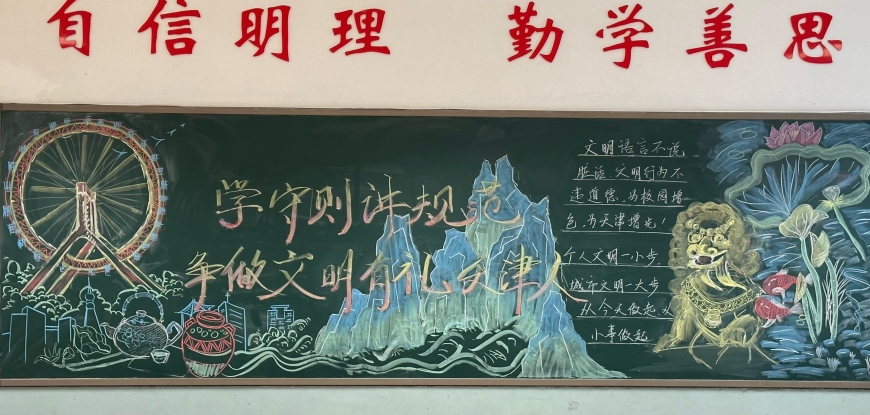 自信明理 勤学善思
学守则讲规范
争做文明有礼天津人
文明语言不说
脏话 文明行为不
走道德，为校园增
色，为天津增光！
个人文明一小步
城市文明一大步
从今天做起 从
小事做起